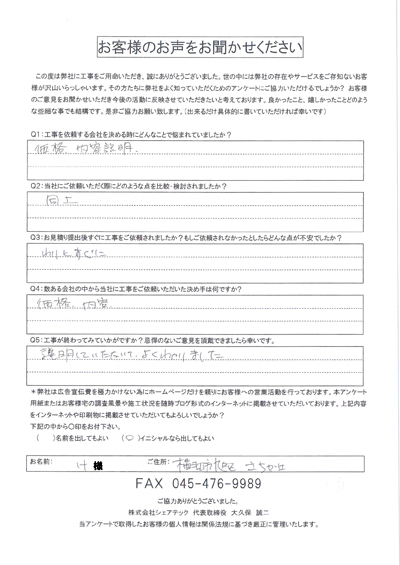 お客様のお声をお聞かせください
この度は弊社に工事をご用命いただき、誠にありがとうございました。世の中には弊社の存在やサービスをご存知ないお客
様が沢山いらっしゃいます。その方たちに弊社をよく知っていただくためのアンケートにご協力いただけるでしょうか? お客様
のご意見をお聞かせいただき今後の活動に反映させていただきたいと考えております。良かったこと、嬉しかったことどのよう
な些細な事でも結構です。是非ご協力お願い致します。(出来るだけ具体的に書いていただければ幸いです)
Q1:工事を依頼する会社を決める時にどんなことで悩まれていましたか?
価格、内容説明、
Q2:当社にご依頼いただく際にどのような点を比較・検討されましたか?
同上
Q3:お見積り提出後すぐに工事をご依頼されましたか?もしご依頼されなかったとしたらどんな点が不安でしたか?
わりとすぐに
Q4:数ある会社の中から当社に工事をご依頼いただいた決め手は何ですか?
価格、内容
Q5:工事が終わってみていかがですか?忌憚のないご意見を頂戴できましたら幸いです。
説明していただいて、よくわかりました
*弊社は広告宣伝費を極力かけない為にホームページだけを頼りにお客様への営業活動を行っております。本アンケート
用紙またはお客様宅の調査風景や施工状況を随時ブログ形式のインターネットに掲載させていただいております。上記内容
をインターネットや印刷物に掲載させていただいてもよろしいでしょうか?
下記の中から〇印をお付下さい。
( )名前を出してもよい (〇)イニシャルなら出してもよい
お名前: 様 ご住所: 横浜市旭区
FAX 045-476-9989
ご協力ありがとうございました。
株式会社シェアテック 代表取締役 大久保 誠二
当アンケートで取得したお客様の個人情報は関係法規に基づき厳正に管理いたします。